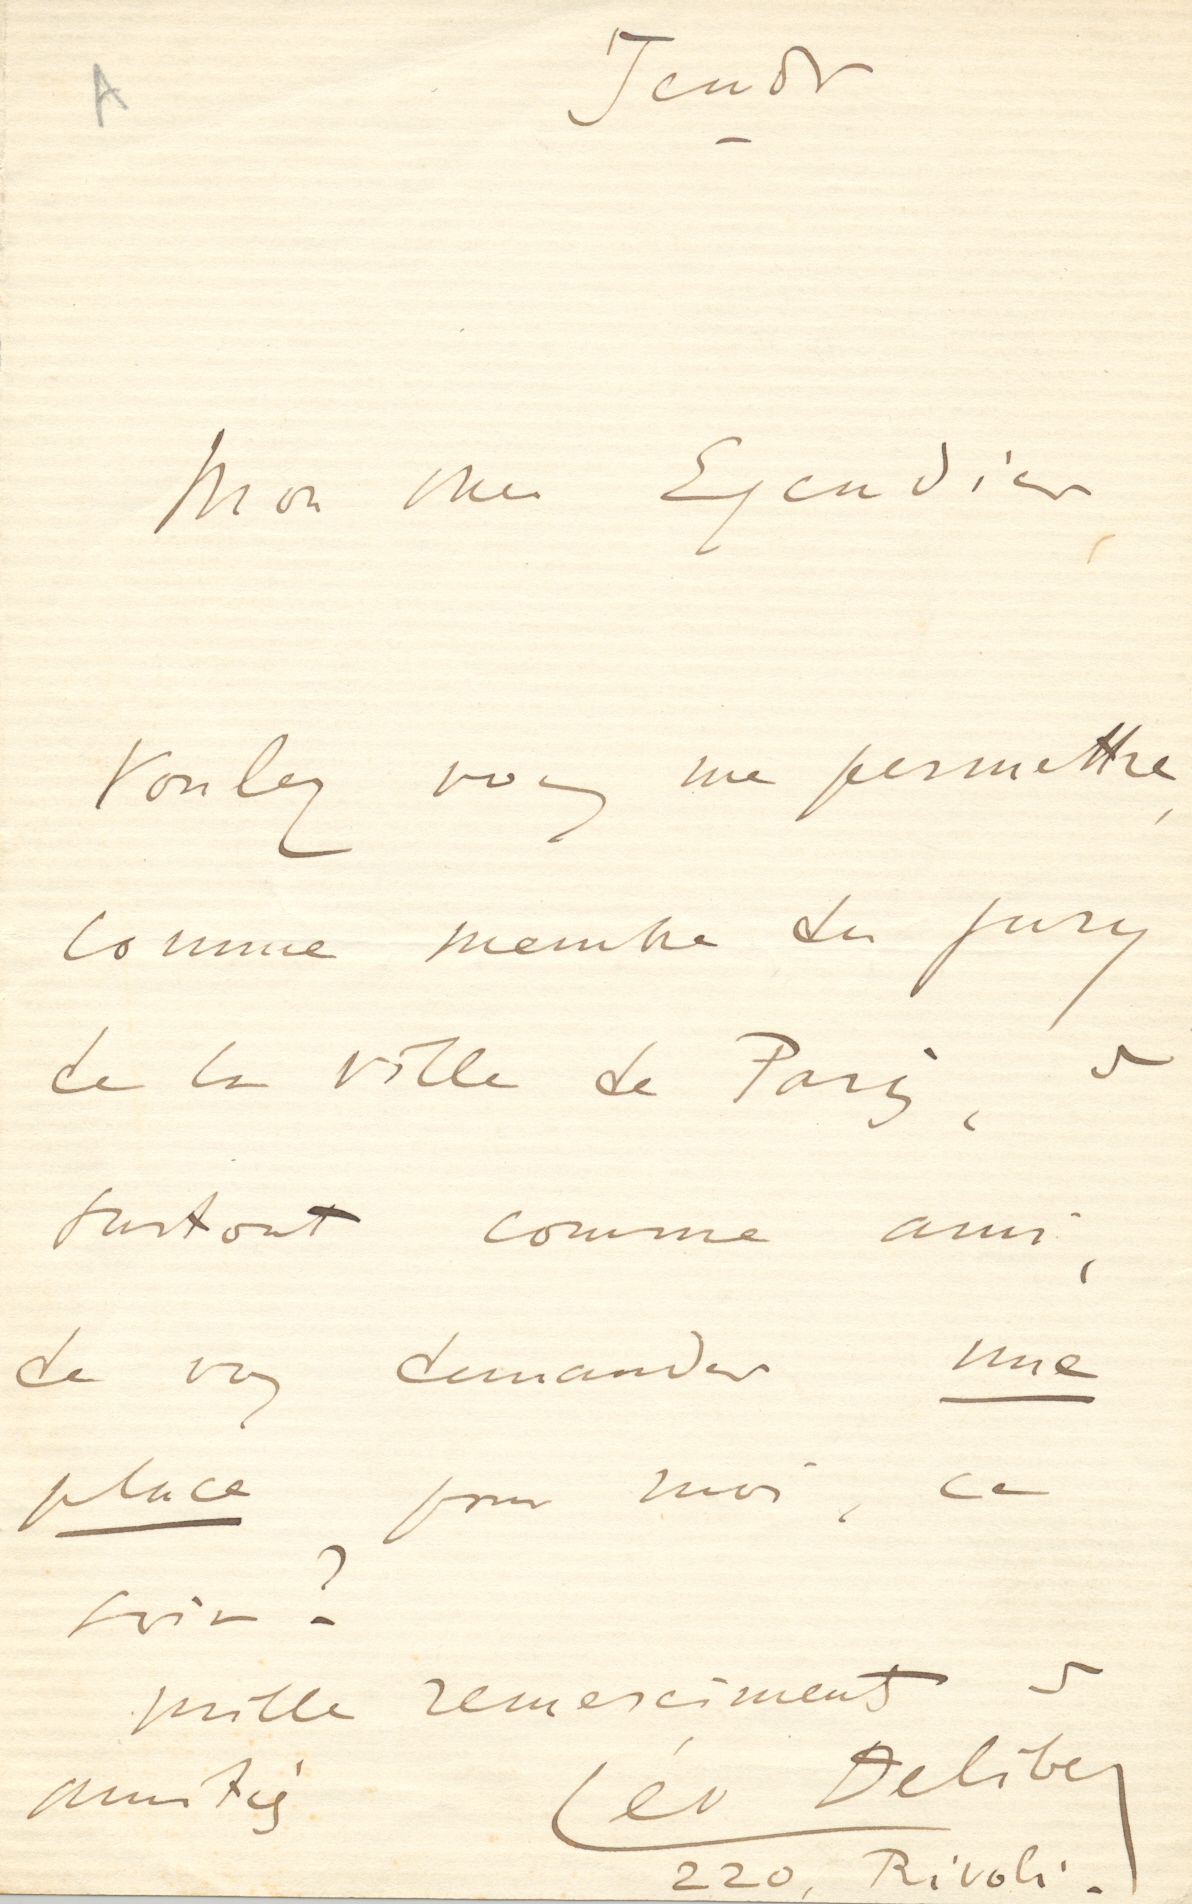 A
Jeudi
Mon cher Escudier,
Voulez vous me permettre,
comme membre du jury
de la ville de Paris, &
surtout comme ami,
de vous demander une
place pour moi, ce
soir?
mille remerciments &
amitiés
Léo Delibes
220, Rivoli.